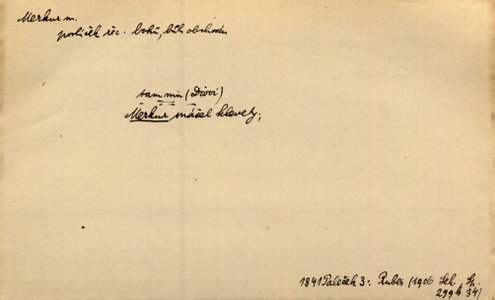 Merkur m.
poslíček řec. bohů, bůh obchodu
tam mu (Diovi)
Merkur snášel klevety;
1841 Paleček 3. Rubeš (1906 Seb. Sp.
299 b 34)